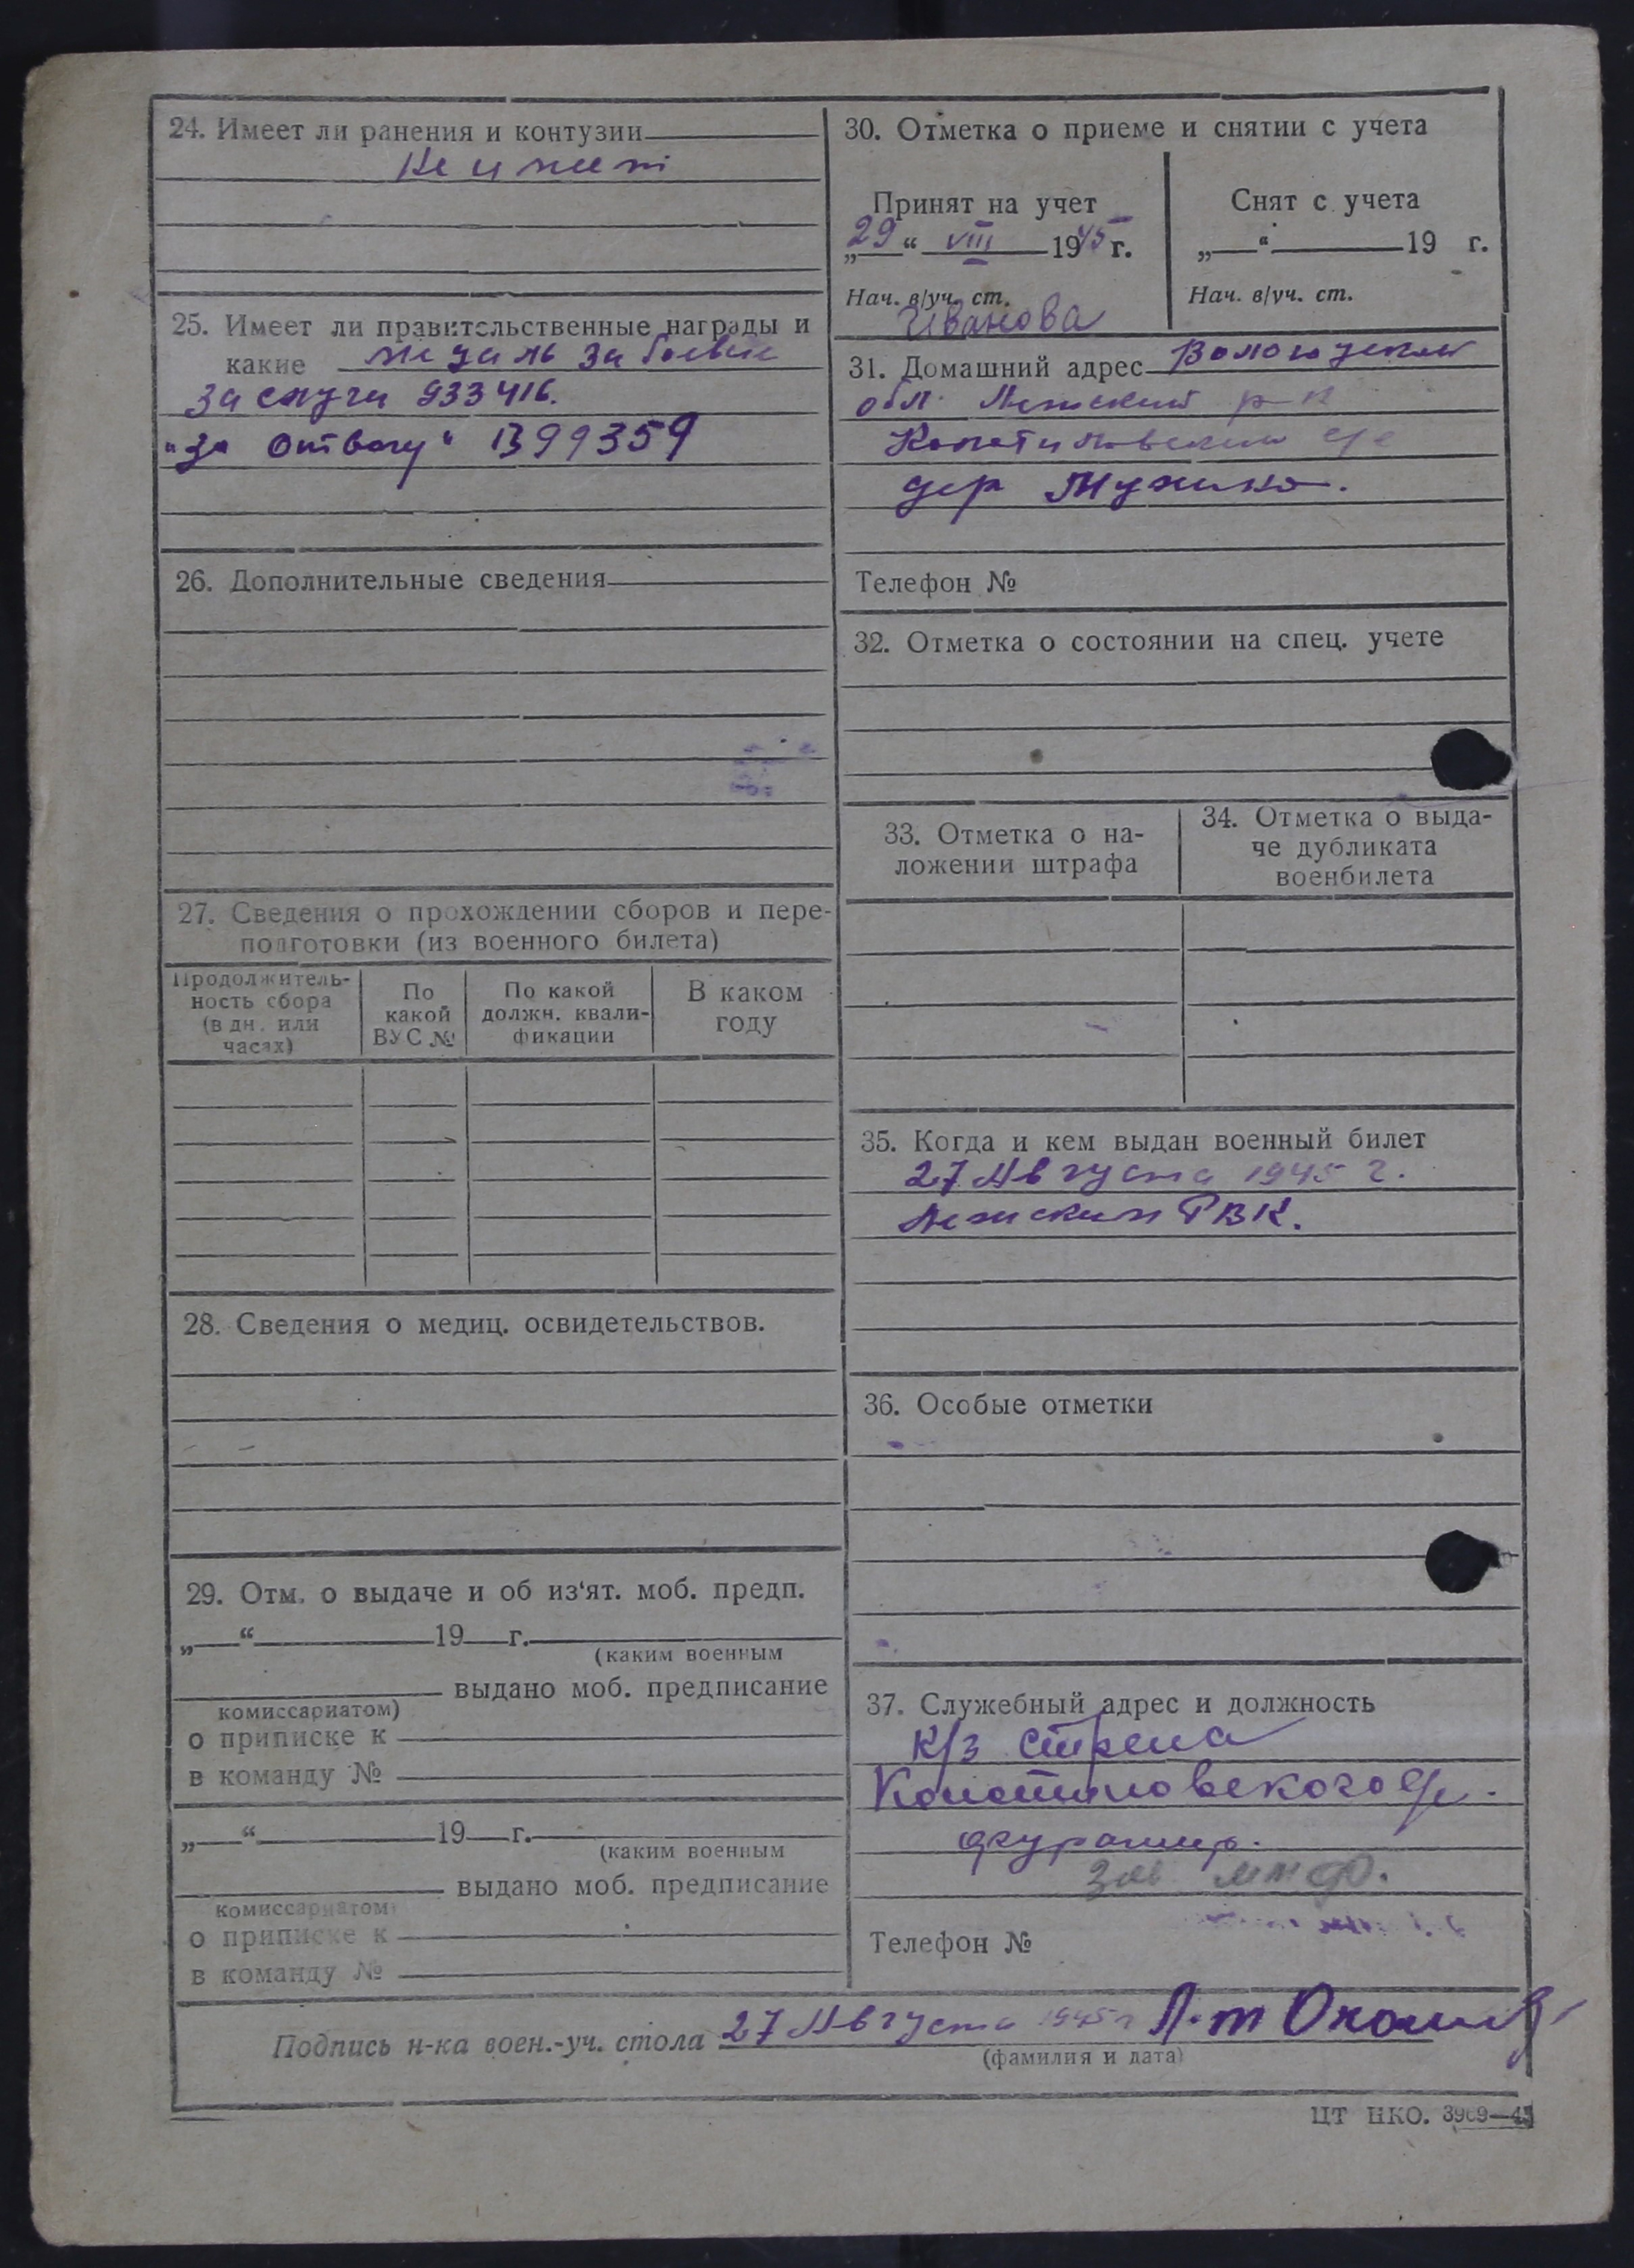 24. Имеет ли ранения и контузии
Не имеет
25. Имеет ли правительственные награды и
какие медаль за боевые
заслуги 933416.
„За отвагу“ 1399359
26. Дополнительные сведения
27. Сведения о прохождении сборов и пере-
подготовки (из военного билета)
Продолжитель-
ность сбора
(в дн. или
часах)
По
какой
ВУС №
По какой
должн. квали-
фикации
В каком
году
28. Сведения о медиц. освидетельствов.
29. Отм. о выдаче и об из‘ят. моб. предп.
„ “ 19 г.
(каким военным
выдано моб. предписание
комиссариатом)
о приписке к
в команду №
„ “ 19 г.
(каким военным
выдано моб. предписание
комиссариатом)
о приписке к
в команду №
30. Отметка о приеме и снятии с учета
Принят на учет
„29“ VIII 1945 г.
Нач. в/уч. ст.
Иванова
Снят с учета
„ “ 19 г.
Нач. в/уч. ст.
31. Домашний адрес Вологодская
обл. Лежский р-н
с/с
дер
Телефон №
32. Отметка о состоянии на спец. учете
33. Отметка о на-
ложении штрафа
34. Отметка о выда-
че дубликата
военбилета
35. Когда и кем выдан военный билет
27 Августа 1945 г.
Лежским РВК.
36. Особые отметки
37. Служебный адрес и должность
к/з
с/с.
фуражир.
Зав мтф.
Телефон №
Подпись н-ка воен.-уч. стола 27 Августа 1945 г Л-т
(фамилия и дата)
ЦТ НКО. 3969—45